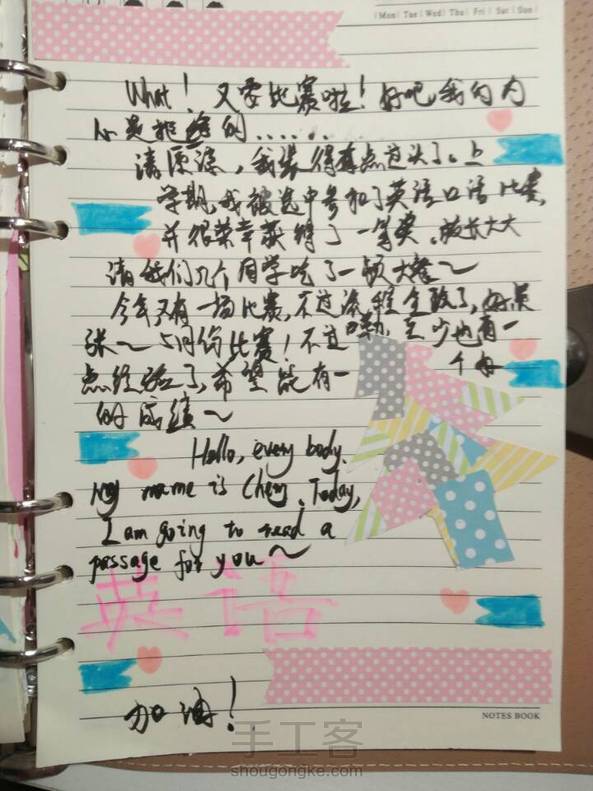 Mon Tue Wed Thu Fri Sat Sun
What! 又要比赛啦!好吧,我的内
心是拒绝的......
请原谅,我装得有点过头了。上
学期,我被选中参加了英语口语比赛,
并很荣幸获得了一等奖。校长大大
请我们几个同学吃了一顿大餐~
今年又有一场比赛,不过流程全改了,好紧
张~5月份比赛!不过嘞,至少也有一
点经验了,希望能有一个好
的成绩~
Hello, every body.
My name is Chery. Today,
I am going to read a
passage for you~
英语
加油!
NOTES BOOK
手工客
shougongke.com